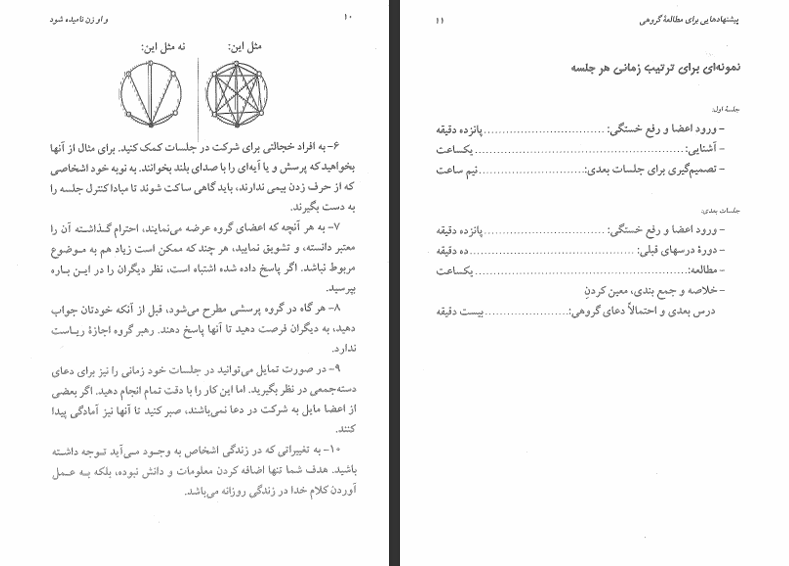 ۱۰
و او زن نامیده شود
مثل این:
نه مثل این:
۶- به افراد خجالتی برای شرکت در جلسات کمک کنید. برای مثال از آنها
بخواهید که پرسش و یا آیه‌ای را با صدای بلند بخوانند. به نوبه خود اشخاصی
که از حرف زدن بیمی ندارند، باید گاهی ساکت شوند تا مبادا کنترل جلسه را
به دست بگیرند.
۷- به هر آنچه که اعضای گروه عرضه می‌نمایند، احترام گذاشته آن را
معتبر دانسته، و تشویق نمایید، هر چند که ممکن است زیاد هم به موضوع
مربوط نباشد. اگر پاسخ داده شده اشتباه است، نظر دیگران را در این باره
بپرسید.
۸- هر گاه در گروه پرسشی مطرح می‌شود، قبل از آنکه خودتان جواب
دهید، به دیگران فرصت دهید تا آنها پاسخ دهند. رهبر گروه اجازهٔ ریاست
ندارد.
۹- در صورت تمایل می‌توانید در جلسات خود زمانی را نیز برای دعای
دسته‌جمعی در نظر بگیرید. اما این کار را با دقت تمام انجام دهید. اگر بعضی
از اعضا مایل به شرکت در دعا نمی‌باشند، صبر کنید تا آنها نیز آمادگی پیدا
کنند.
۱۰- به تغییراتی که در زندگی اشخاص به وجود می‌آید توجه داشته
باشید. هدف شما تنها اضافه کردن معلومات و دانش نبوده، بلکه به عمل
آوردن کلام خدا در زندگی روزانه می‌باشد.
پیشنهادهایی برای مطالعهٔ گروهی
۱۱
نمونه‌ای برای ترتیب زمانی هر جلسه
جلسهٔ اول:
- ورود اعضا و رفع خستگی: ................................ پانزده دقیقه
- آشنایی: ........................................................ یکساعت
- تصمیم‌گیری برای جلسات بعدی: ............................ نیم ساعت
جلسات بعدی:
- ورود اعضا و رفع خستگی: ................................ پانزده دقیقه
- دورهٔ درسهای قبلی: ............................................ ده دقیقه
- مطالعه: ........................................................ یکساعت
- خلاصه و جمع بندی، معین کردنِ
درس بعدی و احتمالاً دعای گروهی: ...................... بیست دقیقه